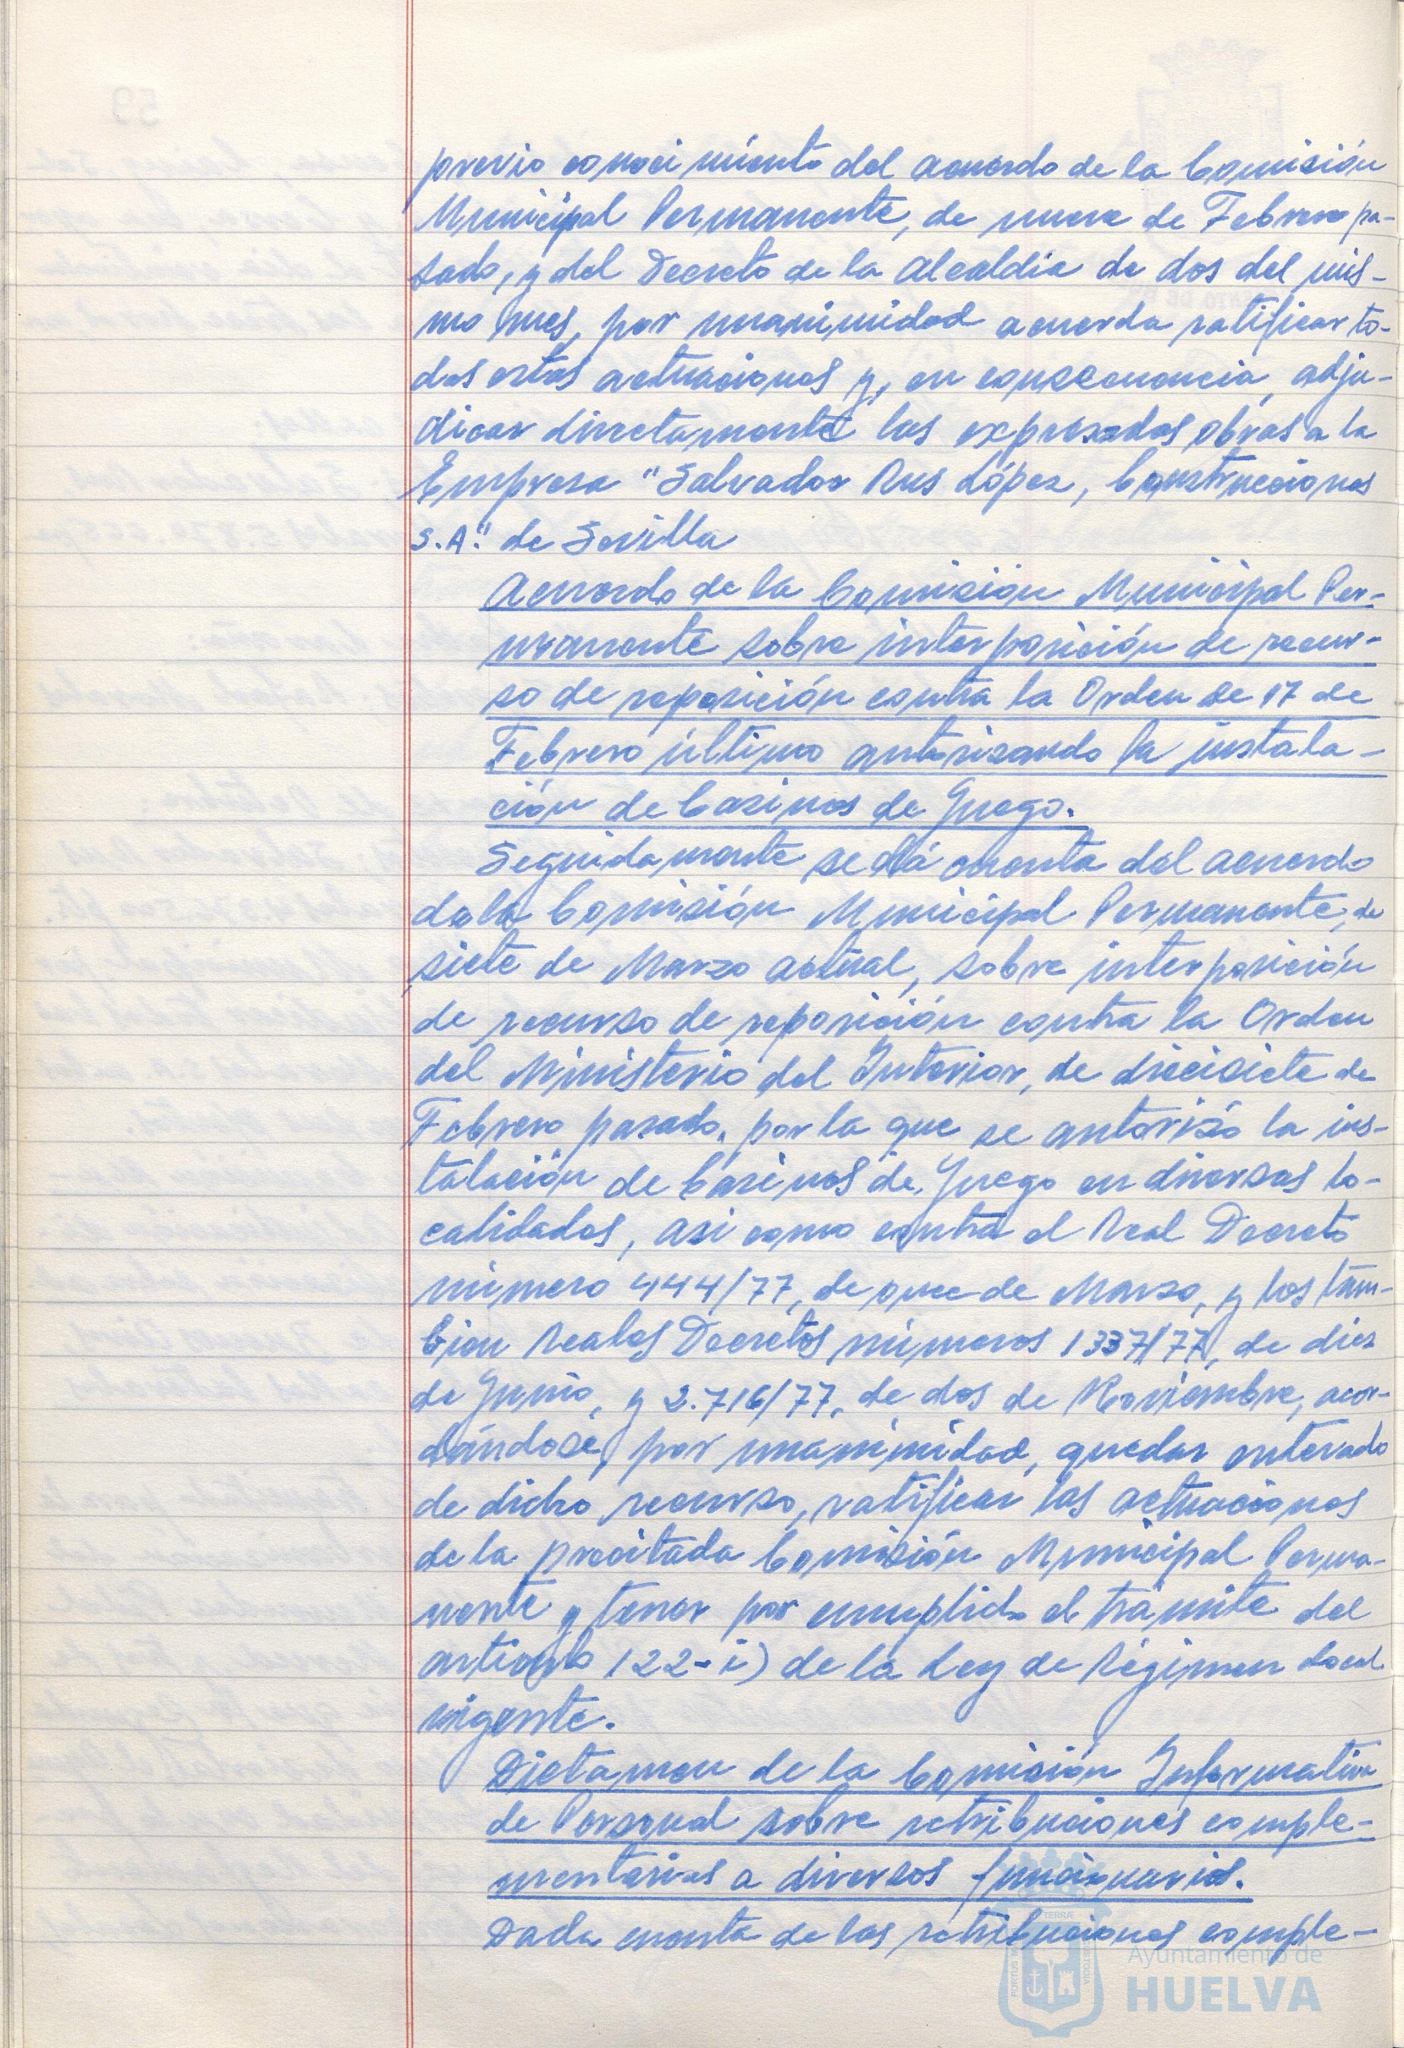 previo conocimiento del acuerdo de la Comisión
Municipal Permanente, de nueve de Febrero pa-
sado, y del Decreto de la Alcaldía de dos del mis-
mo mes, por unanimidad acuerda ratificar to-
das estas actuaciones y, en consecuencia, adju-
dicar directamente las expresadas obras a la
Empresa "Salvador Rus López, Construcciones
S.A." de Sevilla
Acuerdo de la Comisión Municipal Per-
manente sobre interposición de recur-
so de reposición contra la Orden de 17 de
Febrero último autorizando la instala-
ción de Casinos de Juego.
Seguidamente se dá cuenta del acuerdo
de la Comisión Municipal Permanente, de
siete de Marzo actual, sobre interposición
de recurso de reposición contra la Orden
del Ministerio del Interior, de diecisiete de
Febrero pasado, por la que se autorizó la ins-
talación de Casinos de Juego en diversas lo-
calidades, asi como contra el Real Decreto
número 444/77, de once de Marzo, y los tam-
bien Reales Decretos números 1337/77, de diez
de Junio, y 2.716/77, de dos de Noviembre, acor-
dándose, por unanimidad, quedar enterado
de dicho recurso, ratificar las actuaciones
de la precitada Comisión Municipal Perma-
nente y tener por cumplido el trámite del
articulo 122-i) de la Ley de Régimen Local
vigente.
Dictamen de la Comisión Informativa
de Personal sobre retribuciones comple-
mentarias a diversos funcionarios.
Dada cuenta de las retribuciones comple-
Ayuntamiento de
HUELVA